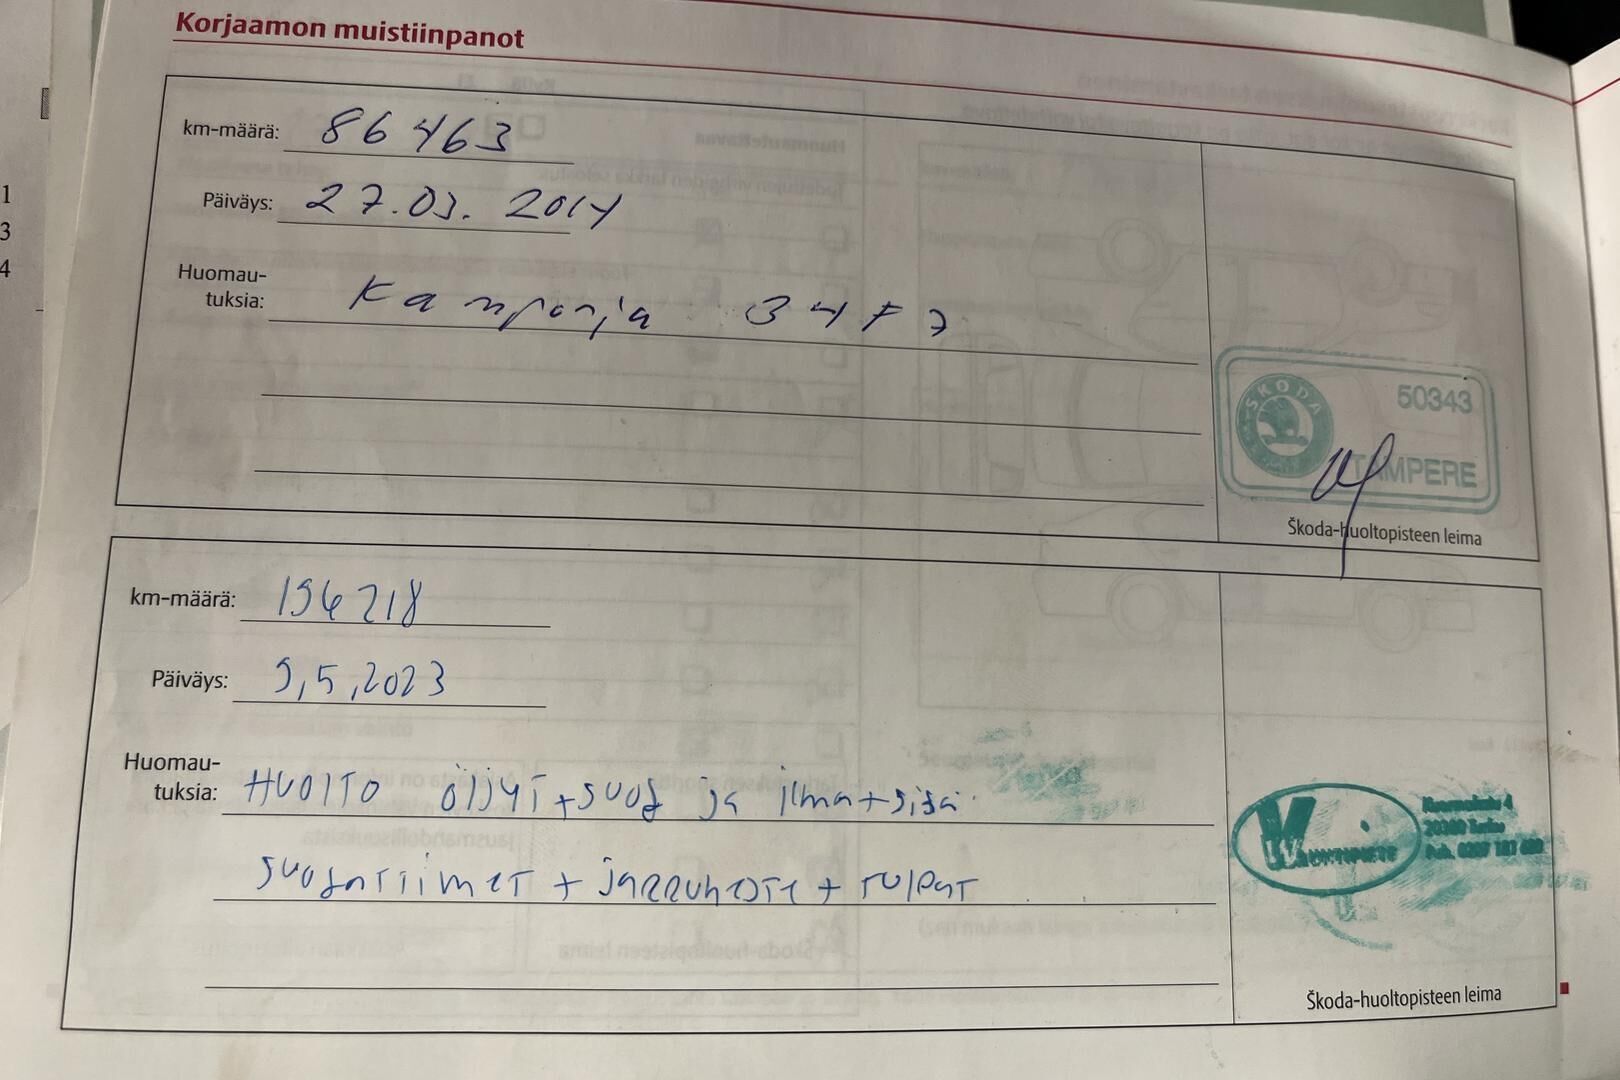 Korjaamon muistiinpanot
km-määrä: 86 463
Päiväys: 27.03.2014
Huomau-
tuksia: Kampanja 34F7
SKODA
50343
TAMPERE
Škoda-huoltopisteen leima
km-määrä: 196218
Päiväys: 9,5,2023
Huomau-
tuksia: HUOLTO ÖLJYT+SUOD ja ilma+sisä
SUODATTIMET + jarruneste + TULPAT
20380 Turku
Škoda-huoltopisteen leima
1
3
4